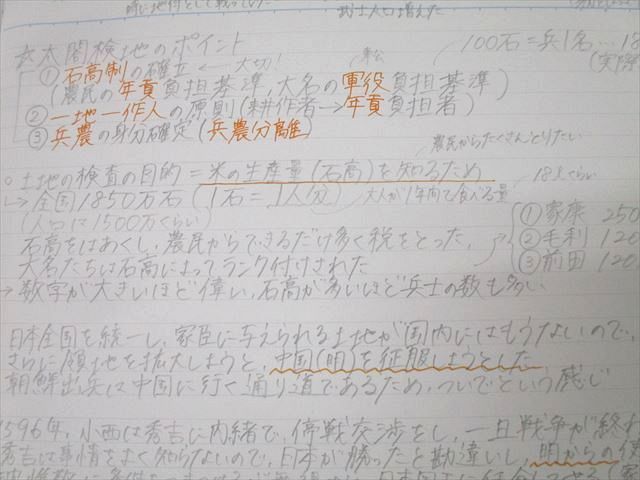 武士人口増えた
☆太閤検地のポイント
①石高制の確立 ← 大切!
(農民の年貢負担基準,大名の軍役負担基準)
100石=兵1名…
(実際
②一地一作人の原則(耕作者→年貢負担者)
③兵農の身分確定(兵農分離)
農民からたくさんとりたい
○土地の検査の目的=米の生産量(石高)を知るため
↳全国1850万石(1石=1人分)
大人が1年間で食べる量
(人口は1500万くらい)
石高をはあくし,農民からできるだけ多く税をとった.
大名たちは石高によってランク付けされた
→数字が大きいほど偉い,石高が多いほど兵士の数も多い
①家康 250
②毛利 120
③前田 120
日本全国を統一し,家臣に与えられる土地が国内にはもうないので,
さらに領地を拡大しようと,中国(明)を征服しようとした
朝鮮出兵は中国に行く通り道であるため,ついでという感じ
1596年,小西は秀吉に内緒で,停戦交渉をし,一旦戦争が終わ
秀吉は事情をよく知らないので,日本が勝ったと勘違いし,明からの使